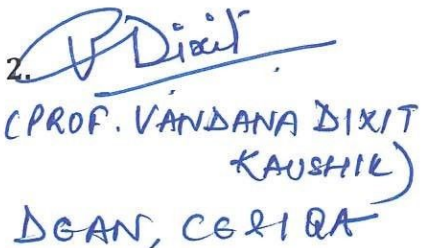 2. V Dixit
(PROF. VANDANA DIXIT
KAUSHIK)
DEAN, CE&IQA